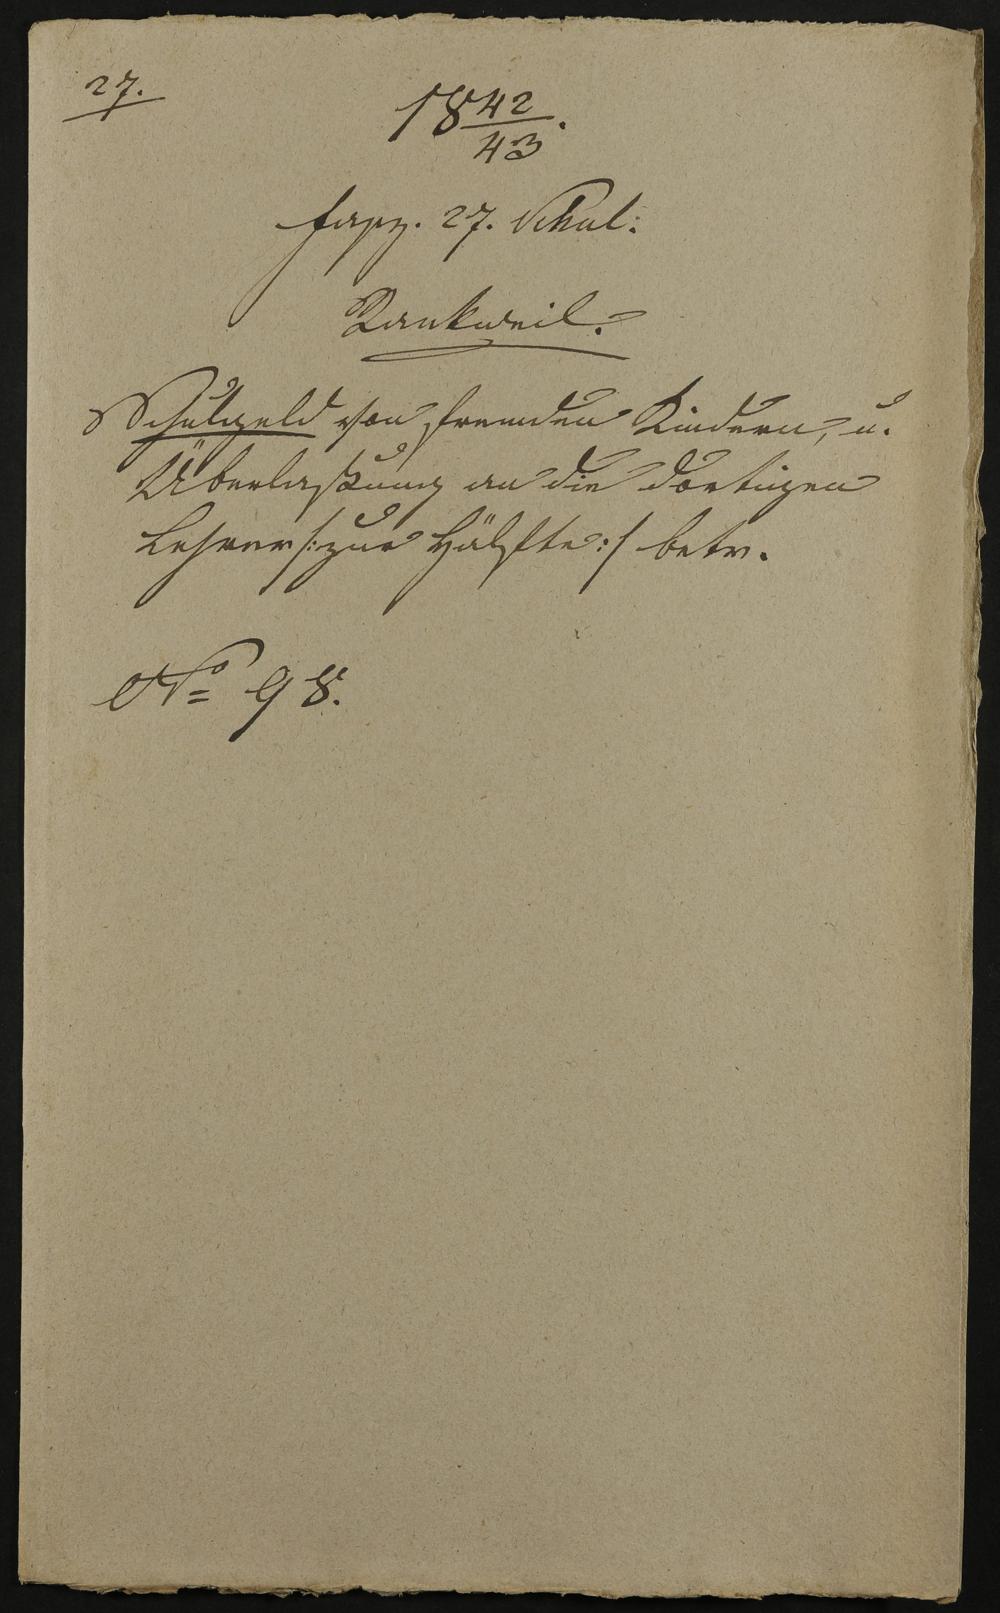 27.
1842/43.
fasz. 27. Schul:
Rankweil.
Schulgeld von fremden Kindern, u.
Überlaßung an die dortigen
Lehrer /: zur Hälfte :/ betr.
No 98.